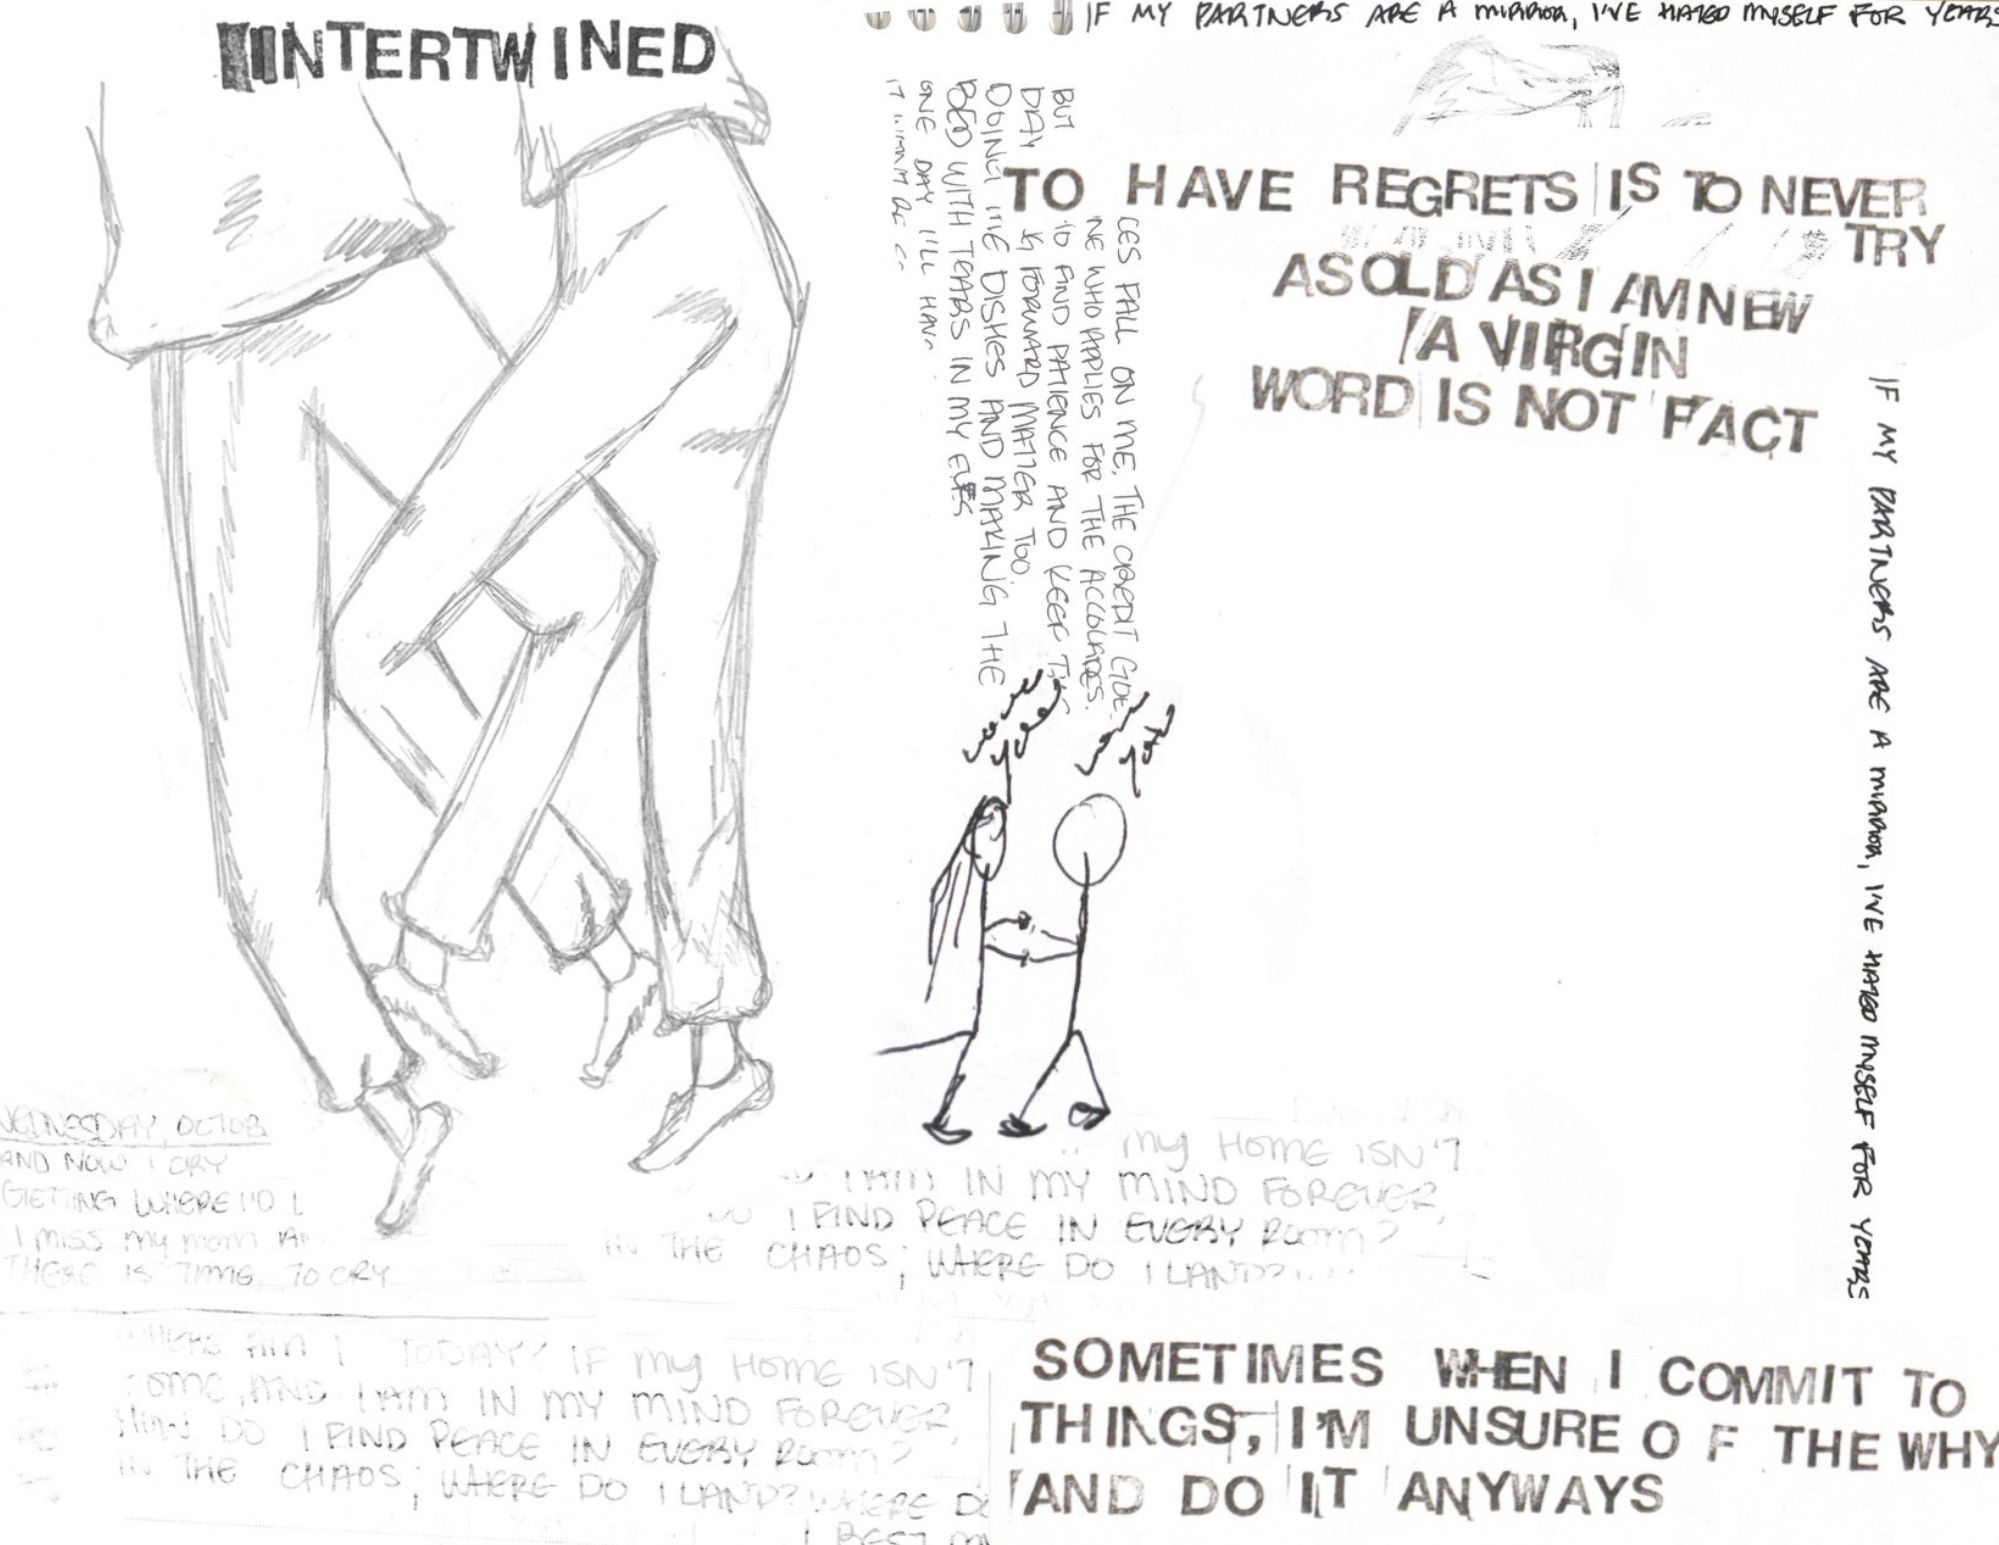 INTERTWINED
IF MY PARTNERS ARE A MIRROR, I'VE HATED MYSELF FOR YEARS
TO HAVE REGRETS IS TO NEVER
TRY
AS OLD AS I AM NEW
A VIRGIN
WORD IS NOT FACT
FALL ON ME. THE CREDIT GOE
NE WHO APPLIES FOR THE ACCOLADES.
BUT TO FIND PATIENCE AND KEEP
DAY FORWARD MATTER TOO.
DOING THE DISHES AND MAKING THE
BED WITH TEARS IN MY EYES
ONE DAY I'LL HAV
IF MY PARTNERS ARE A MIRROR, I'VE HATED MYSELF FOR YEARS
WEDNESDAY, OCTOB
AND NOW I CRY
GETTING WHERE I'D L
I MISS MY MOM AN
THERE IS TIME TO CRY
MY HOME ISN'T
I AM IN MY MIND FOREVER,
DO I FIND PEACE IN EVERY ROOM?
IN THE CHAOS; WHERE DO I LAND?
WHERE AM I TODAY? IF MY HOME ISN'T
OME, AND I AM IN MY MIND FOREVER,
HOW DO I FIND PEACE IN EVERY ROOM?
IN THE CHAOS; WHERE DO I LAND? WHERE DO
I BEST MY
SOMETIMES WHEN I COMMIT TO
THINGS, I'M UNSURE OF THE WHY
AND DO IT ANYWAYS